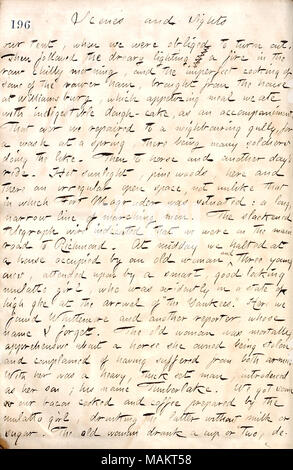 196
Scenes and Sights
our tent, when we were obliged to turn out.
Then followed the dreary lighting of a fire in the
raw chilly morning, and the imperfect cooking of
some of the rawer ham, brought from the house
at Williamsburg, which appetizing meal we ate
with indigestible dough-cake, as an accompaniment
that over we repaired to a neighboring gully, for
a wash at a spring there being many soldiers
doing the like. Then to horse and another day's
ride. Hot sunlight, pine woods here and
there an irregular open space, not unlike that
in which Fort Magruder was situated: a long
narrow line of marching men. The slackened
telegraph wire indicated that we were on the main
road to Richmond. At midday we halted at
a house occupied by one old woman and three young
ones, attended upon by a smart, good looking
mulatto girl who was evidently in a state of
high glee at the arrival of the Yankees. Here we
found Whittemore and another reporter whose
name I forget. The old woman was mortally
apprehensive about a horse she owned being stolen
and complained of having suffered from both armies.
With her was a heavy, thick set man introduced
as her son; his name Timberlake. We got some
of our bacon cooked and coffee prepared by the
mulatto girl drinking the latter without milk or
sugar. The old woman drank a cup or two, de-
alamy
Image ID: MAKT58
www.alamy.com